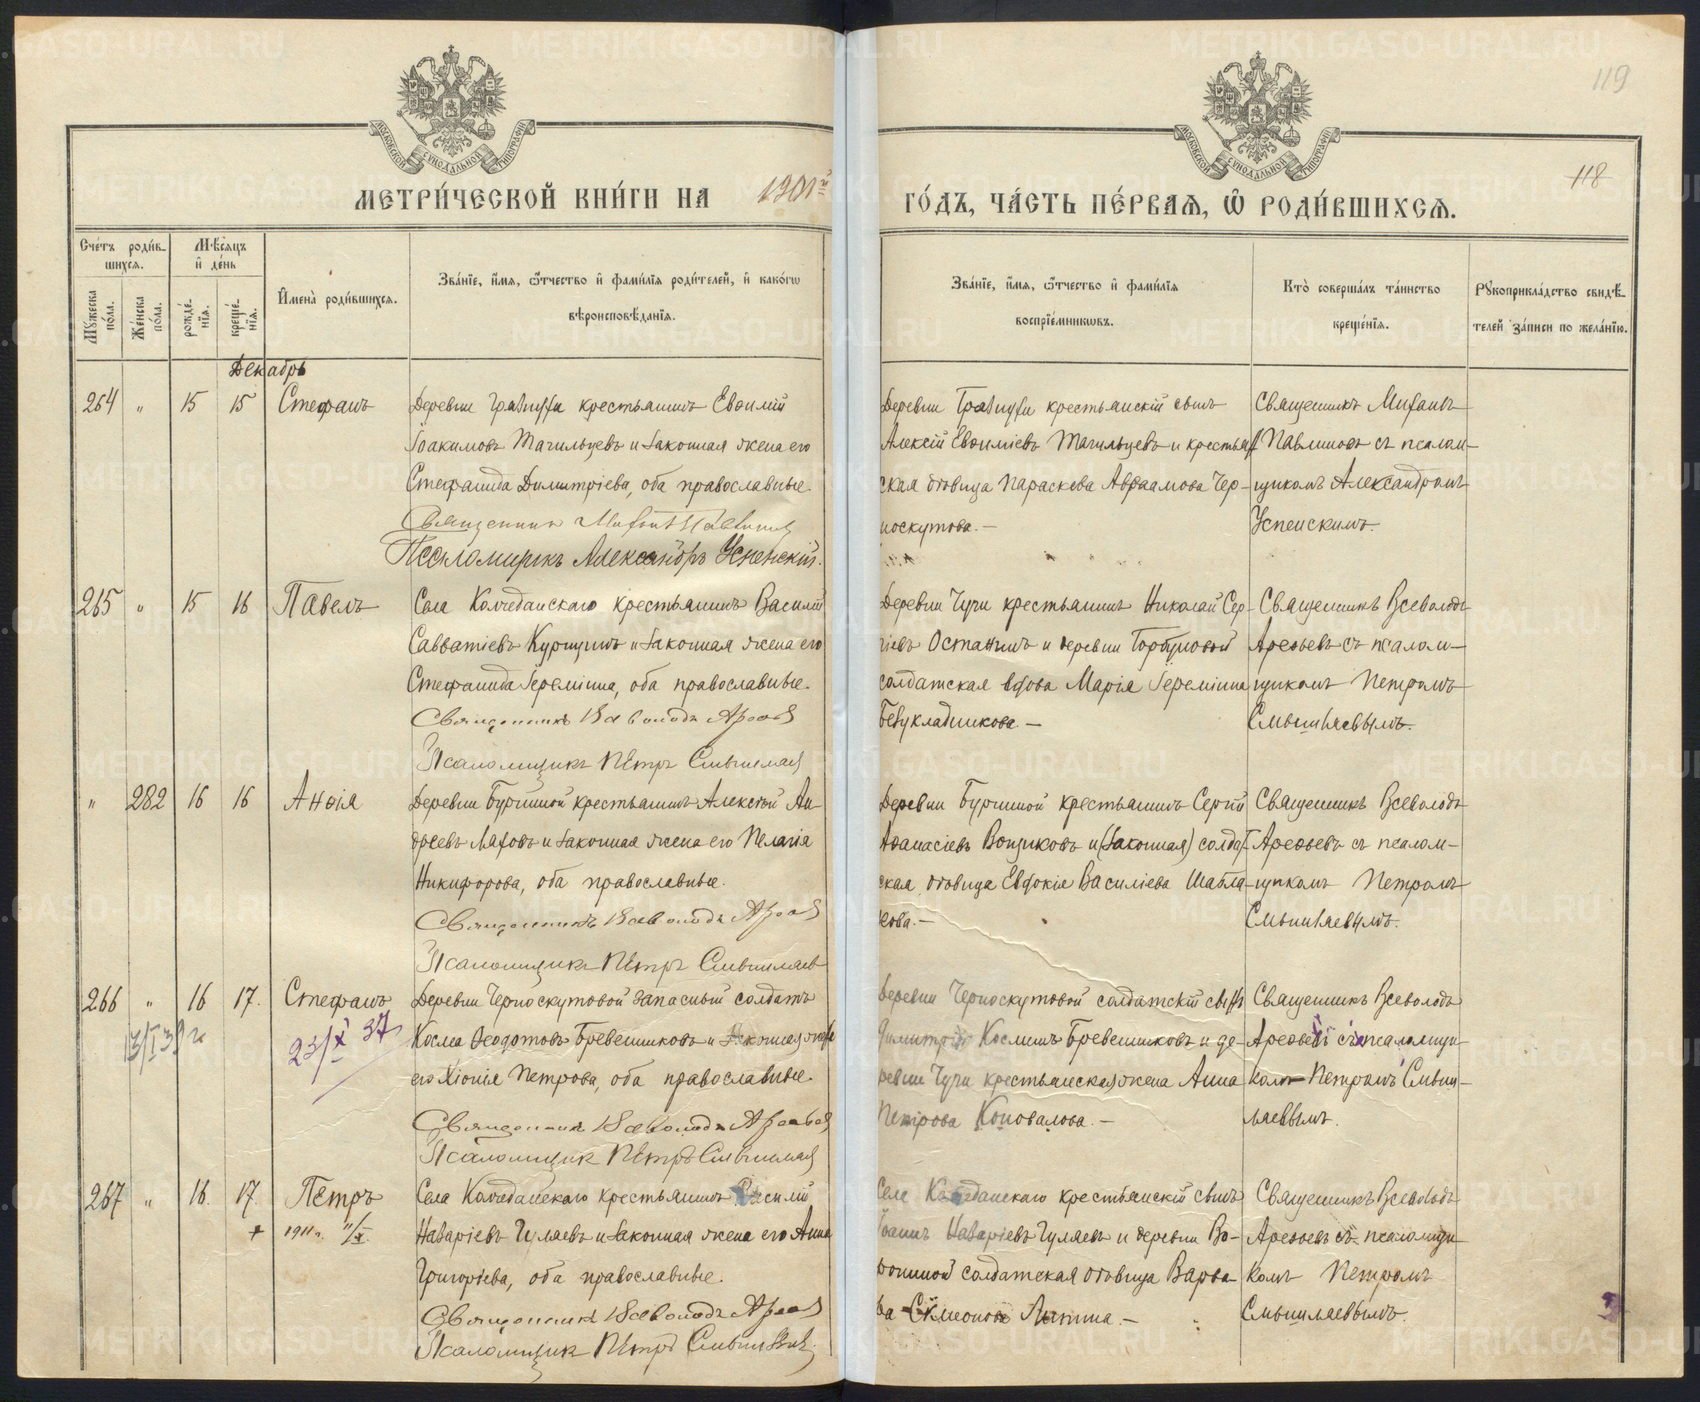 119
118
МОСКОВСКОЙ СѴНОДАЛЬНОЙ ТИПОГРАФІИ
МОСКОВСКОЙ СѴНОДАЛЬНОЙ ТИПОГРАФІИ
МЕТРИ́ЧЕСКОЙ КНИ́ГИ НА 1901й ГО́ДЪ, ЧА́СТЬ ПЕ́РВАѦ, Ѽ РОДИ́ВШИХСѦ.
Сче́тъ роди́в-
шихсѧ.
Мѣ́сѧцъ
и҆ де́нь
Мꙋ́жеска по́ла.
Же́нска по́ла.
рожде́-
нїѧ.
креще́-
нїѧ.
И҆мена̀ роди́вшихсѧ.
Зва́нїе, и҆́мѧ, ѻ҆́тчество и҆ фами́лїѧ роди́телей, и҆ како́гѡ
вѣроисповѣ́данїѧ.
Зва́нїе, и҆́мѧ, ѻ҆́тчество и҆ фами́лїѧ
воспрїе́мникѡвъ.
Кто̀ соверша́лъ та́инство
креще́нїѧ.
Рꙋкоприкла́дство свидѣ́-
телей за́писи по жела́нїю.
Декабрь
264 " 15 15 Стефанъ
Деревни Грязнухи крестьянинъ Евѳимій
Іоакимовъ Тагильцевъ и законная жена его
Стефанида Димитріева, оба православные.
Священникъ Мифанъ Павлиновъ
Псаломщикъ Александръ Успенскій.
Деревни Грязнухи крестьянскій сынъ
Алексій Евѳиміевъ Тагильцевъ и крестьян-
ская дѣвица Параскева Авраамова Чер-
носкутова.—
Священникъ Мифанъ
Павлиновъ съ псалом-
щикомъ Александромъ
Успенскимъ.
265 " 15 16 Павелъ
Села Колчеданскаго крестьянинъ Василій
Савватіевъ и законная жена его
Стефанида Іереміина, оба православные.
Священникъ Всеволодъ Арефьевъ
Псаломщикъ Петръ Смышляевъ
Деревни Чучи крестьянинъ Николай Сер-
гіевъ Останинъ и деревни Горбуновой
солдатская вдова Марія Іереміина
Безукладникова.—
Священникъ Всеволодъ
Арефьевъ съ псалом-
щикомъ Петромъ
Смышляевымъ.
" 282 16 16 Анѳія
Деревни Бурниной крестьянинъ Алексѣй Ан-
дреевъ Ляховъ и законная жена его Пелагія
Никифорова, оба православные.
Священникъ Всеволодъ Арефьевъ
Псаломщикъ Петръ Смышляевъ
Деревни Бурниной крестьянинъ Сергій
Аѳанасіевъ Вощиковъ и (законная) солдат-
ская дѣвица Евдокія Василіева Шабла-
кова.—
Священникъ Всеволодъ
Арефьевъ съ псалом-
щикомъ Петромъ
Смышляевымъ.
266 " 16 17. Стефанъ
13/I 39 г
23/X 37
Деревни Черноскутовой запасный солдатъ
Косма Ѳеодотовъ Бревешниковъ и законная жена
его Хіонія Петрова, оба православные.
Священникъ Всеволодъ Арефьевъ
Псаломщикъ Петръ Смышляевъ
Деревни Черноскутовой солдатскій сынъ
Димитрій Косминъ Бревешниковъ и де-
ревни Чучи крестьянская жена Анна
Петрова Коновалова.—
Священникъ Всеволодъ
Арефьевъ съ псаломщи-
комъ Петромъ Смыш-
ляевымъ.
267 " 16. 17. Петръ
+ 1911 г. 11/X.
Села Колчеданскаго крестьянинъ Василій
Назаріевъ Чуляевъ и законная жена его Анна
Григоріева, оба православные.
Священникъ Всеволодъ Арефьевъ
Псаломщикъ Петръ Смышляевъ.
Села Колчеданскаго крестьянскій сынъ
Іоаннъ Назаріевъ Чуляевъ и деревни Во-
рониной солдатская дѣвица Варва-
ра Сѵмеонова Лапина.—
Священникъ Всеволодъ
Арефьевъ съ псаломщи-
комъ Петромъ
Смышляевымъ.